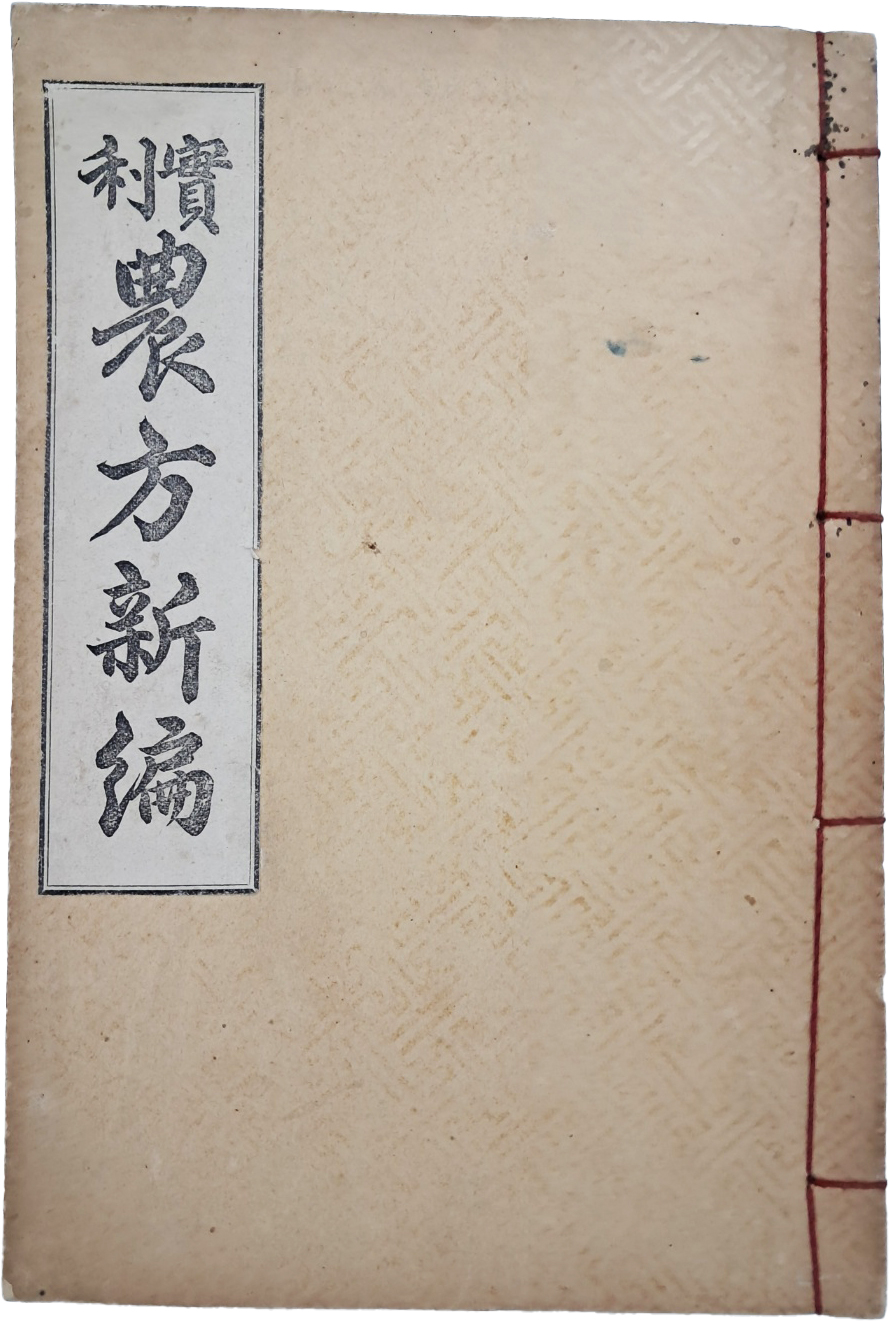 實利
農方新編